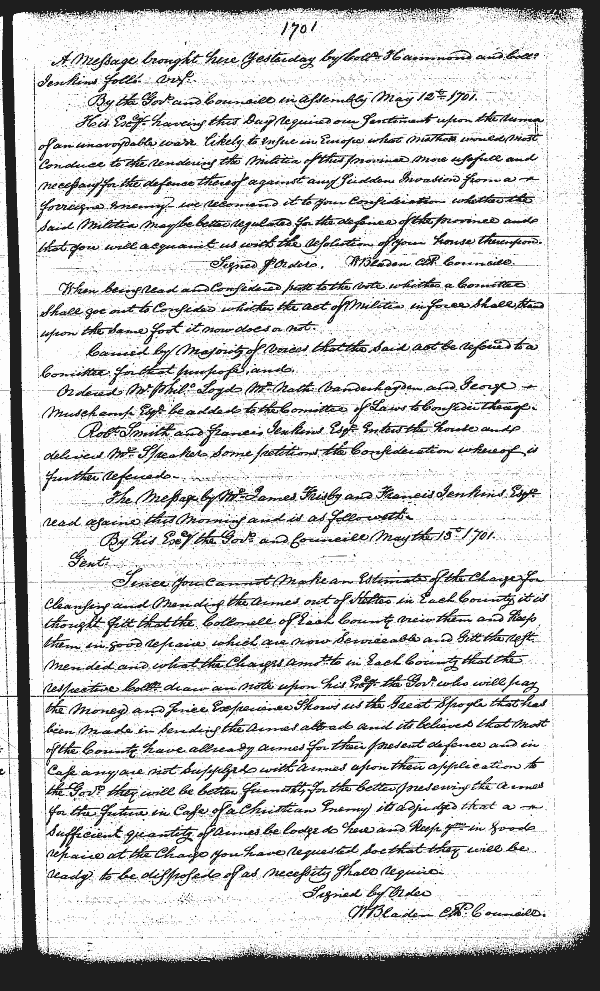 1701
A Message brought here Yesterday by Coll:o Hammond and Coll:o
Jenkins foll: viz:t
By the Gov:r and Councill in Assembly May 12th 1701.
His Exc:y having this Day required our Sentiment upon the rumor
of an unavoydable warr likely to ensue in Europe what methods would most
Conduce to the rendering the Militia of this province more usefull and
necessary for the defence thereof against any Sudden Invasion from a
forreigne enemy we recomend it to your Consideration whether the
said Militia may be better regulated for the defence of the province and
that you will acquaint us with the resolution of your house thereupon.
Signed p Order. W Bladen Cl: Councill
When being read and Considered putt to the vote whether a Comittee
Shall goe out to Consider whether the act of Militia in force Shall stand
upon the Same foot it now does a not.
Carried by Majority of Voices that the said act be referred to a
Comittee for that purpose, and
Ordered Mr Phil: Loyd Mr Nath: Vanderhagden and George
Muschamp Esq:r be added to the Comittee of Laws to Consider thereof.
Rob:t Smith and Francis Jenkins Esq:r Enters the house and
delivers Mr Speaker Some petitions the Consideration whereof is
further referred.
The Message by Mr James Frisby and Francis Jenkins Esq:r
read againe this Morning and is as followeth.
By his Exc:y the Gov:r and Councill May the 13th 1701.
Gent:
Since you cannot Make an Estimate of the Charge for
Cleansing and Mending the Armes out of Kelter in Each County it is
thought fitt that the Collonell of Each County view them and Keep
them in good repaire which are now Serviceable and Gitt the rest
mended and what the Charges am:t to in Each County that the
respective Coll:o draw an note upon his Exc:y the Gov:r who will pay
the Money and Since Experience Shows us the Great Spoyle that has
been made in Sending the Armes abroad and its believed that Most
of the County have allready armes for their present defence and in
Case any are not Supplyed with Armes upon their application to
the Gov:r they will be better furnisht, for the better preserving the Armes
for the future in Case of a Christian Enemy its adjudged that a
Sufficient quantity of Armes be lodged here and Keep y:m in good
repaire at the Charge you have requested soe that they will be
ready to be disposed of as necessity shall require.
Signed by Order
W Bladen Cl: Councill.